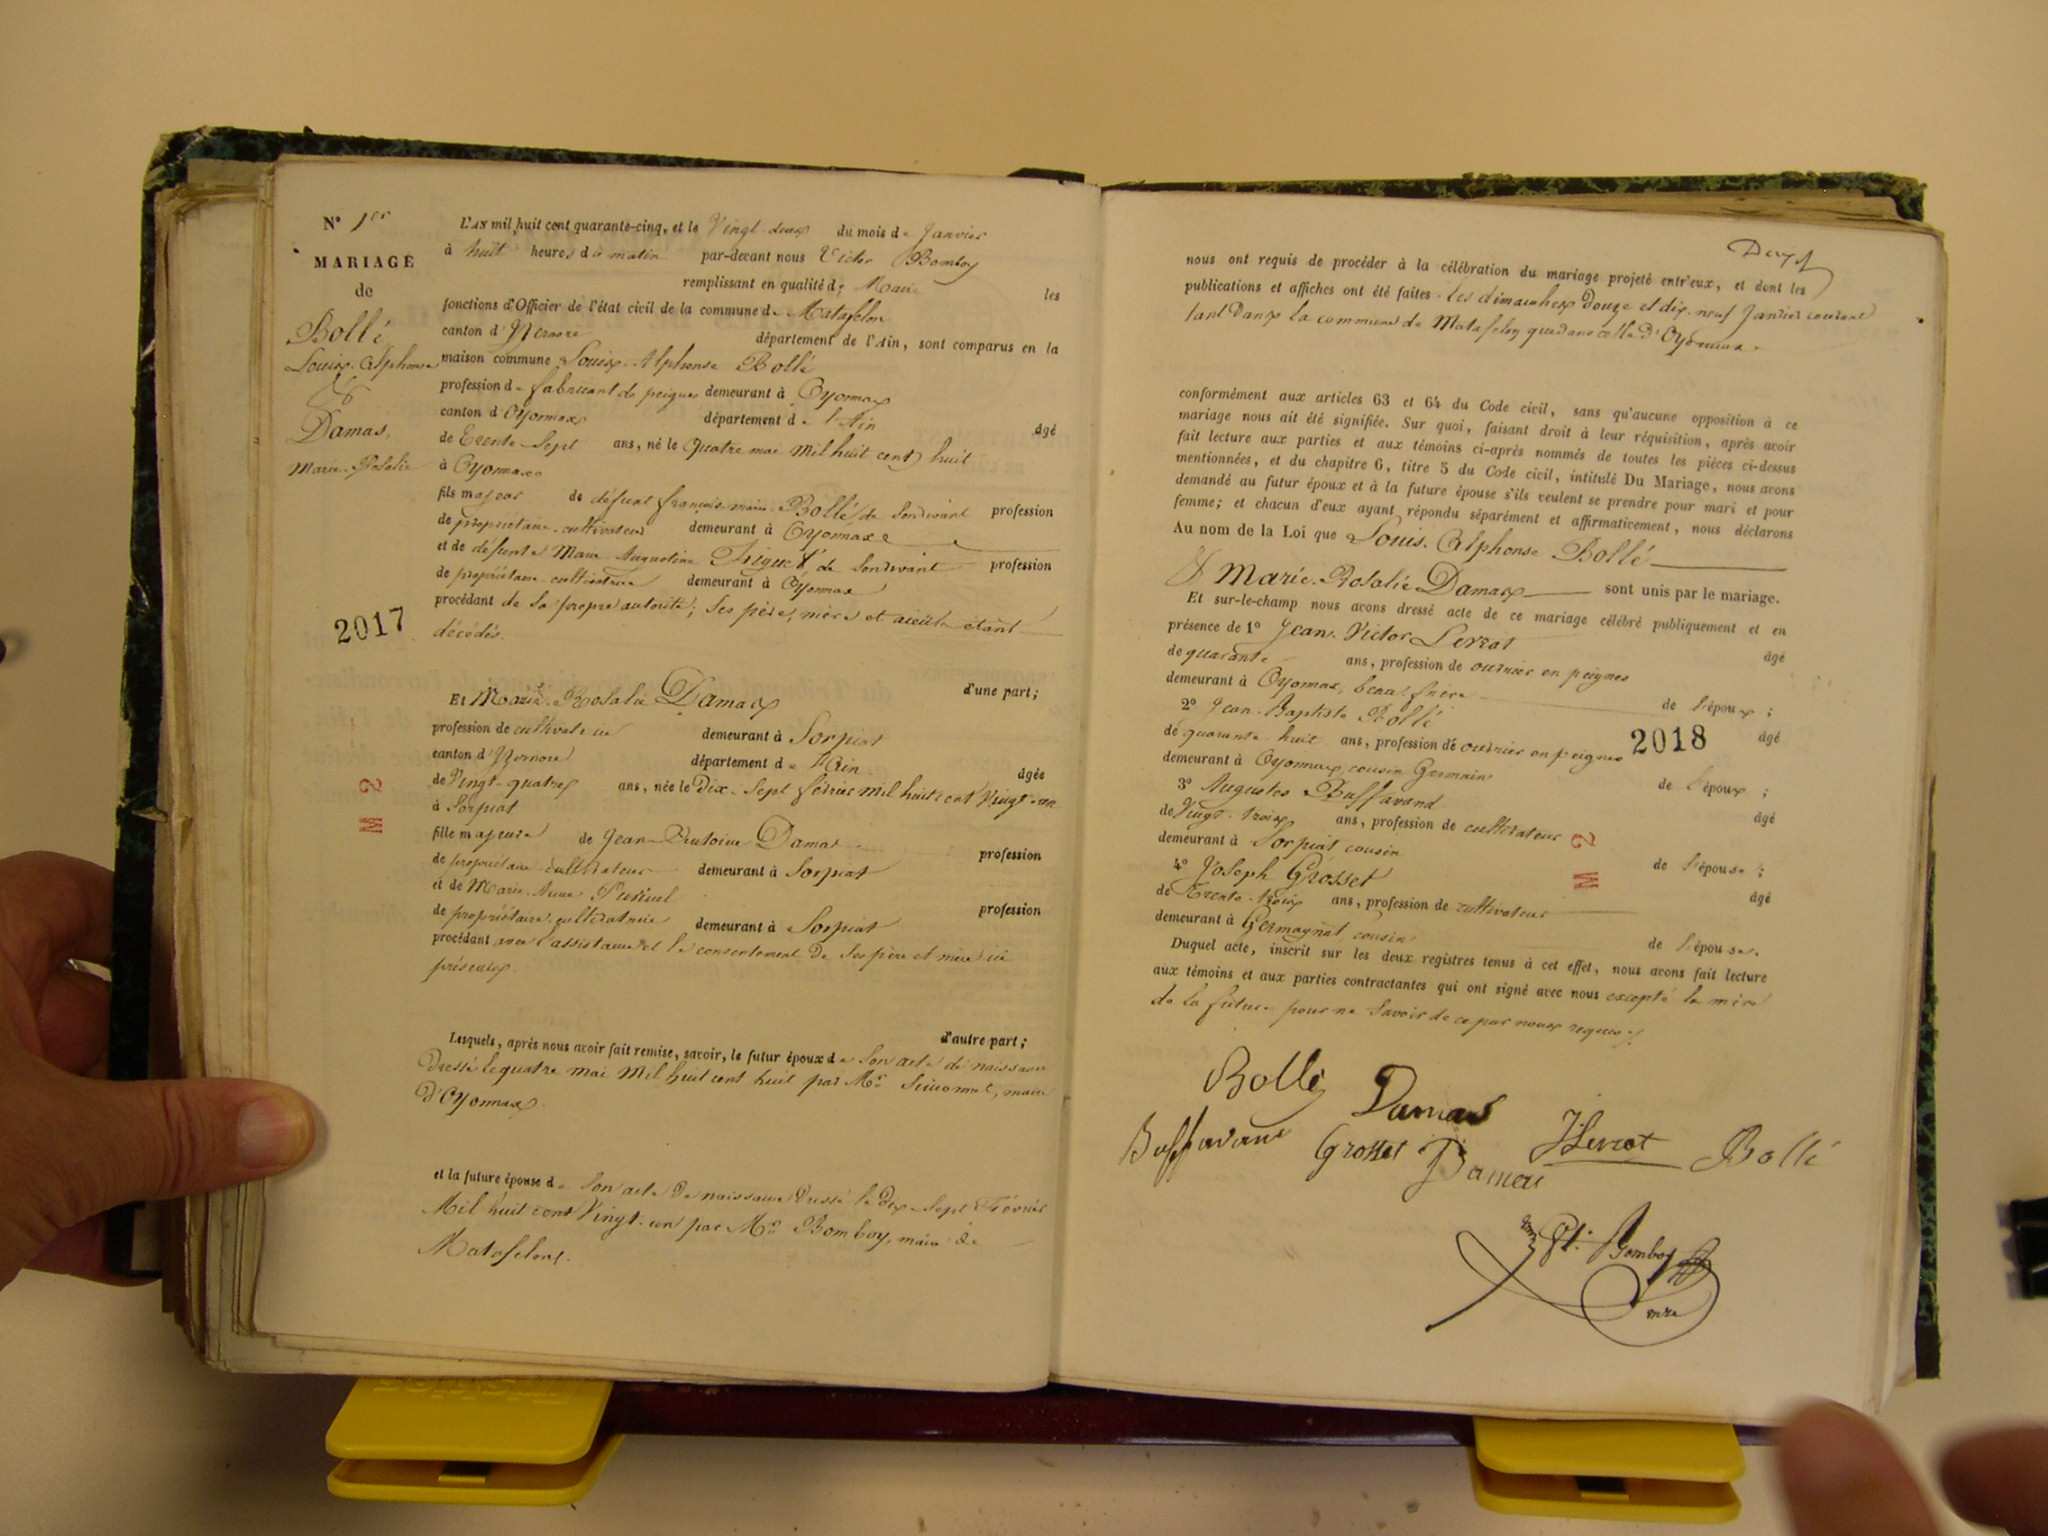 N° 1er
MARIAGE
de
Bollé,
Louis-Alphonse
&
Damas,
Marie-Rosalie
2017
M 2
L'AN mil huit cent quarante-cinq, et le Vingt-deux du mois de Janvier
à huit heures du matin par-devant nous Victor Bomboy
remplissant en qualité de Maire les
fonctions d'Officier de l'état civil de la commune de Matafelon
canton d'Yzernore département de l'Ain, sont comparus en la
maison commune Louis-Alphonse Bollé
profession de fabricant de peignes demeurant à Oyonnax
canton d'Oyonnax département de l'Ain âgé
de Trente-Sept ans, né le quatre mai Mil huit cent huit
à Oyonnax
fils majeur de défunt françois-marie Bollé de Son vivant profession
de propriétaire-cultivateur demeurant à Oyonnax
et de défunte Marie Augustine de Son vivant profession
de propriétaire-cultivatrice demeurant à Oyonnax
procédant de Sa propre autorité; Ses père, mère et aïeuls étant
décédés.
d'une part;
Et Marie-Rosalie Damas
profession de cultivatrice demeurant à Sorpiat
canton d'Yzernore département de l'Ain âgée
de Vingt-quatre ans, née le Dix-Sept février Mil huit cent Vingt-un
à Sorpiat
fille majeure de Jean-Antoine Damas profession
de propriétaire cultivateur demeurant à Sorpiat
et de Marie-Anne profession
de propriétaire cultivatrice demeurant à Sorpiat
procédant avec l'assistance et le consentement de Ses père et mère ici
présents.
d'autre part;
Lesquels, après nous avoir fait remise, savoir, le futur époux de Son acte de naissance
Dressé le quatre mai Mil huit cent huit par Mr maire
d'Oyonnax.
et la future épouse de Son acte de naissance Dressé le Dix-Sept Février
Mil huit cent Vingt-un par Mr Bomboy, maire de
Matafelon.
nous ont requis de procéder à la célébration du mariage projeté entr'eux, et dont les
publications et affiches ont été faites les dimanches Douze et dix-neuf Janvier courant
tant Dans la commune de Matafelon que dans celle d'Oyonnax.
conformément aux articles 63 et 64 du Code civil, sans qu'aucune opposition à ce
mariage nous ait été signifiée. Sur quoi, faisant droit à leur réquisition, après avoir
fait lecture aux parties et aux témoins ci-après nommés de toutes les pièces ci-dessus
mentionnées, et du chapitre 6, titre 5 du Code civil, intitulé Du Mariage, nous avons
demandé au futur époux et à la future épouse s'ils veulent se prendre pour mari et pour
femme; et chacun d'eux ayant répondu séparément et affirmativement, nous déclarons
Au nom de la Loi que Louis-Alphonse Bollé
& Marie-Rosalie Damas sont unis par le mariage.
Et sur-le-champ nous avons dressé acte de ce mariage célébré publiquement et en
présence de 1° Jean-Victor Levrat âgé
de quarante ans, profession de ouvrier en peignes
demeurant à Oyonnax, beau-frère de l'époux;
2° Jean-Baptiste Bollé âgé
de quarante-huit ans, profession de ouvrier en peignes
2018
demeurant à Oyonnax cousin Germain de l'époux;
3° Auguste Buffavand âgé
de Vingt-trois ans, profession de cultivateur
demeurant à Sorpiat cousin de l'épouse;
4° Joseph Grosset âgé
de Trente-trois ans, profession de cultivateur
M 2
demeurant à Germagnat cousin de l'épouse.
Duquel acte, inscrit sur les deux registres tenus à cet effet, nous avons fait lecture
aux témoins et aux parties contractantes qui ont signé avec nous excepté la mère
de la future pour ne Savoir de ce par nous requise.
Bollé Damas
Buffavant Grosset Damas JLevrat Bollé
Bomboy
mre